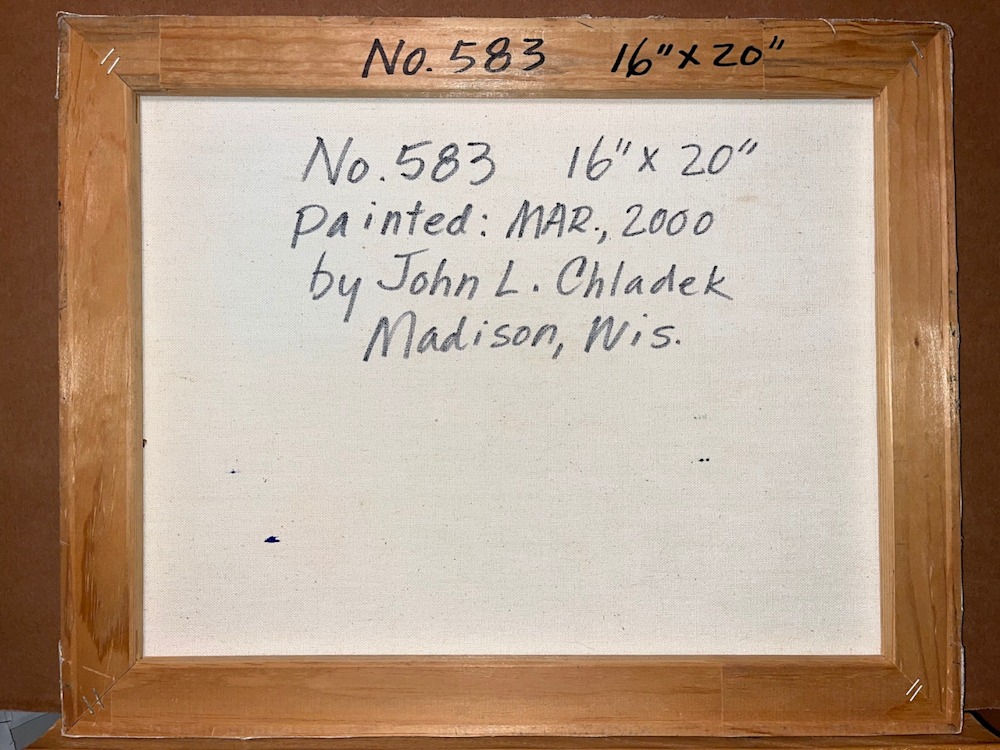 No. 583 16" x 20"
No. 583 16" x 20"
Painted: MAR., 2000
by John L. Chladek
Madison, Wis.